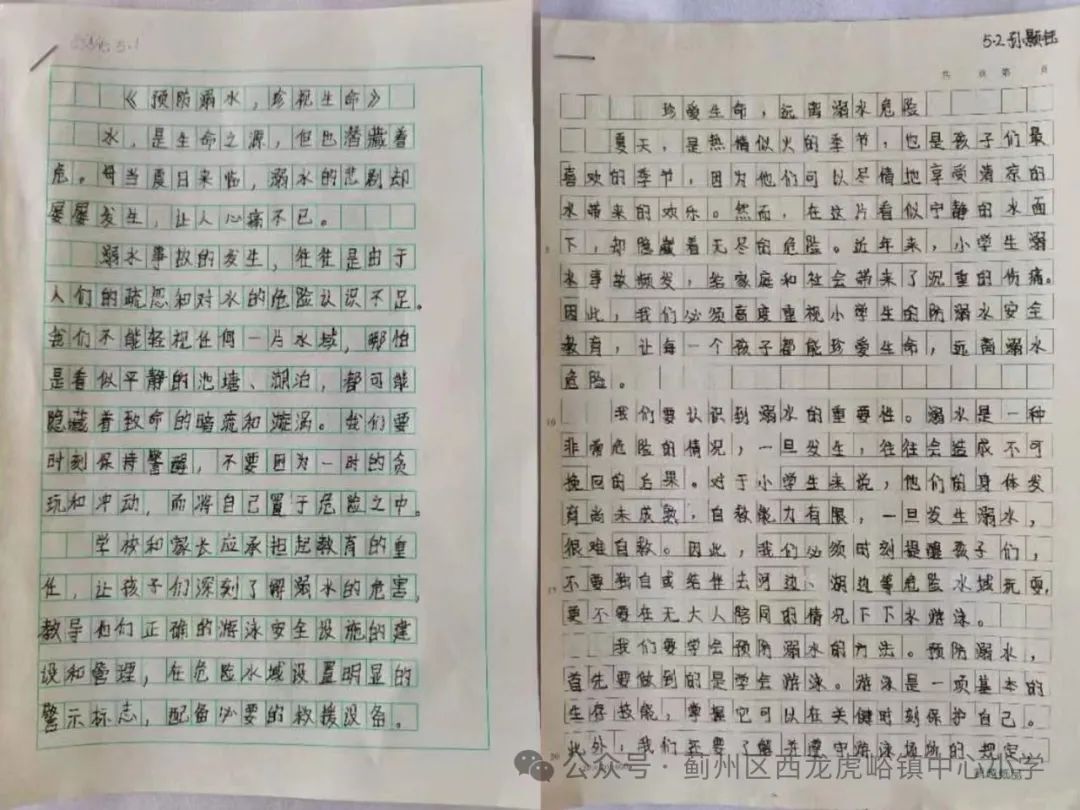 5.1
《预防溺水，珍视生命》
水，是生命之源，但也潜藏着
危。每当夏日来临，溺水的悲剧却
屡屡发生，让人心痛不已。
溺水事故的发生，往往是由于
人们的疏忽和对水的危险认识不足。
我们不能轻视任何一片水域，哪怕
是看似平静的池塘、湖泊，都可能
隐藏着致命的暗流和漩涡。我们要
时刻保持警醒，不要因为一时的贪
玩和冲动，而将自己置于危险之中。
学校和家长应承担起教育的重
任，让孩子们深刻了解溺水的危害，
教导他们正确的游泳安全设施的建
设和管理，在危险水域设置明显的
警示标志，配备必要的救援设备。
5.2
共 页 第 页
珍爱生命，远离溺水危险
夏天，是热情似火的季节，也是孩子们最
喜欢的季节，因为他们可以尽情地享受清凉的
水带来的欢乐。然而，在这片看似宁静的水面
下，却隐藏着无尽的危险。近年来，小学生溺
水事故频发，给家庭和社会带来了沉重的伤痛。
因此，我们必须高度重视小学生的防溺水安全
教育，让每一个孩子都能珍爱生命，远离溺水
危险。
我们要认识到溺水的重要性。溺水是一种
非常危险的情况，一旦发生，往往会造成不可
挽回的后果。对于小学生来说，他们的身体发
育尚未成熟，自救能力有限，一旦发生溺水，
很难自救。因此，我们必须时刻提醒孩子们，
不要独自或结伴去河边、湖边等危险水域玩耍，
更不要在无大人陪同的情况下下水游泳。
我们要学会预防溺水的方法。预防溺水，
首先要做到的是学会游泳。游泳是一项基本的
生存技能，掌握它可以在关键时刻保护自己。
此外，我们还要了解并遵守游泳场所的规定
公众号·蓟州区西龙虎峪镇中心小学